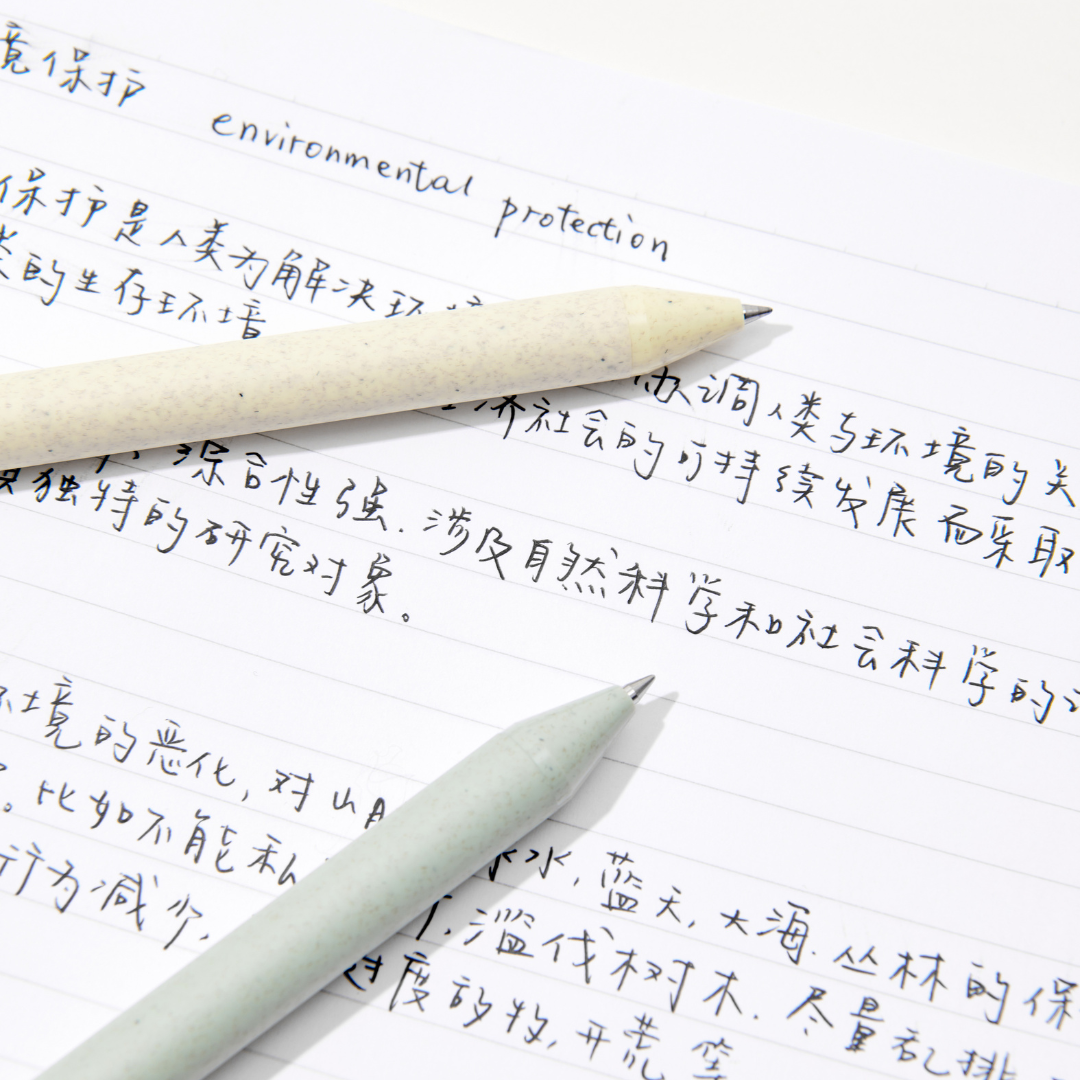 境保护 environmental protection
保护是人类为解决环境 协调人类与环境的关
类的生存环境 经济社会的可持续发展而采取
深合性强.涉及自然科学和社会科学的
独特的研究对象。
环境的恶化,对山 水,蓝天,大海.丛林的保
。比如不能私 滥伐树木.尽量乱排
行为减少, 过度放牧,开荒等